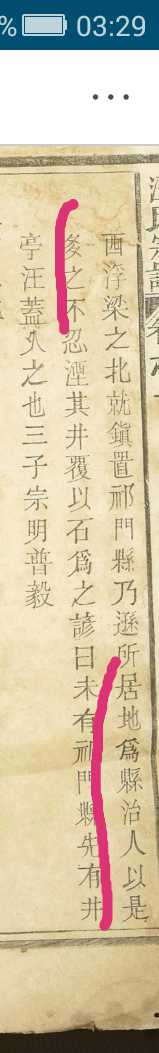 %
03:29
西浮梁之北就鎮置祁門縣乃遜所居地爲縣治人以是
多之不忍湮其井覆以石爲之諺曰未有祁門縣先有井
亭汪蓋之也三子宗明普毅